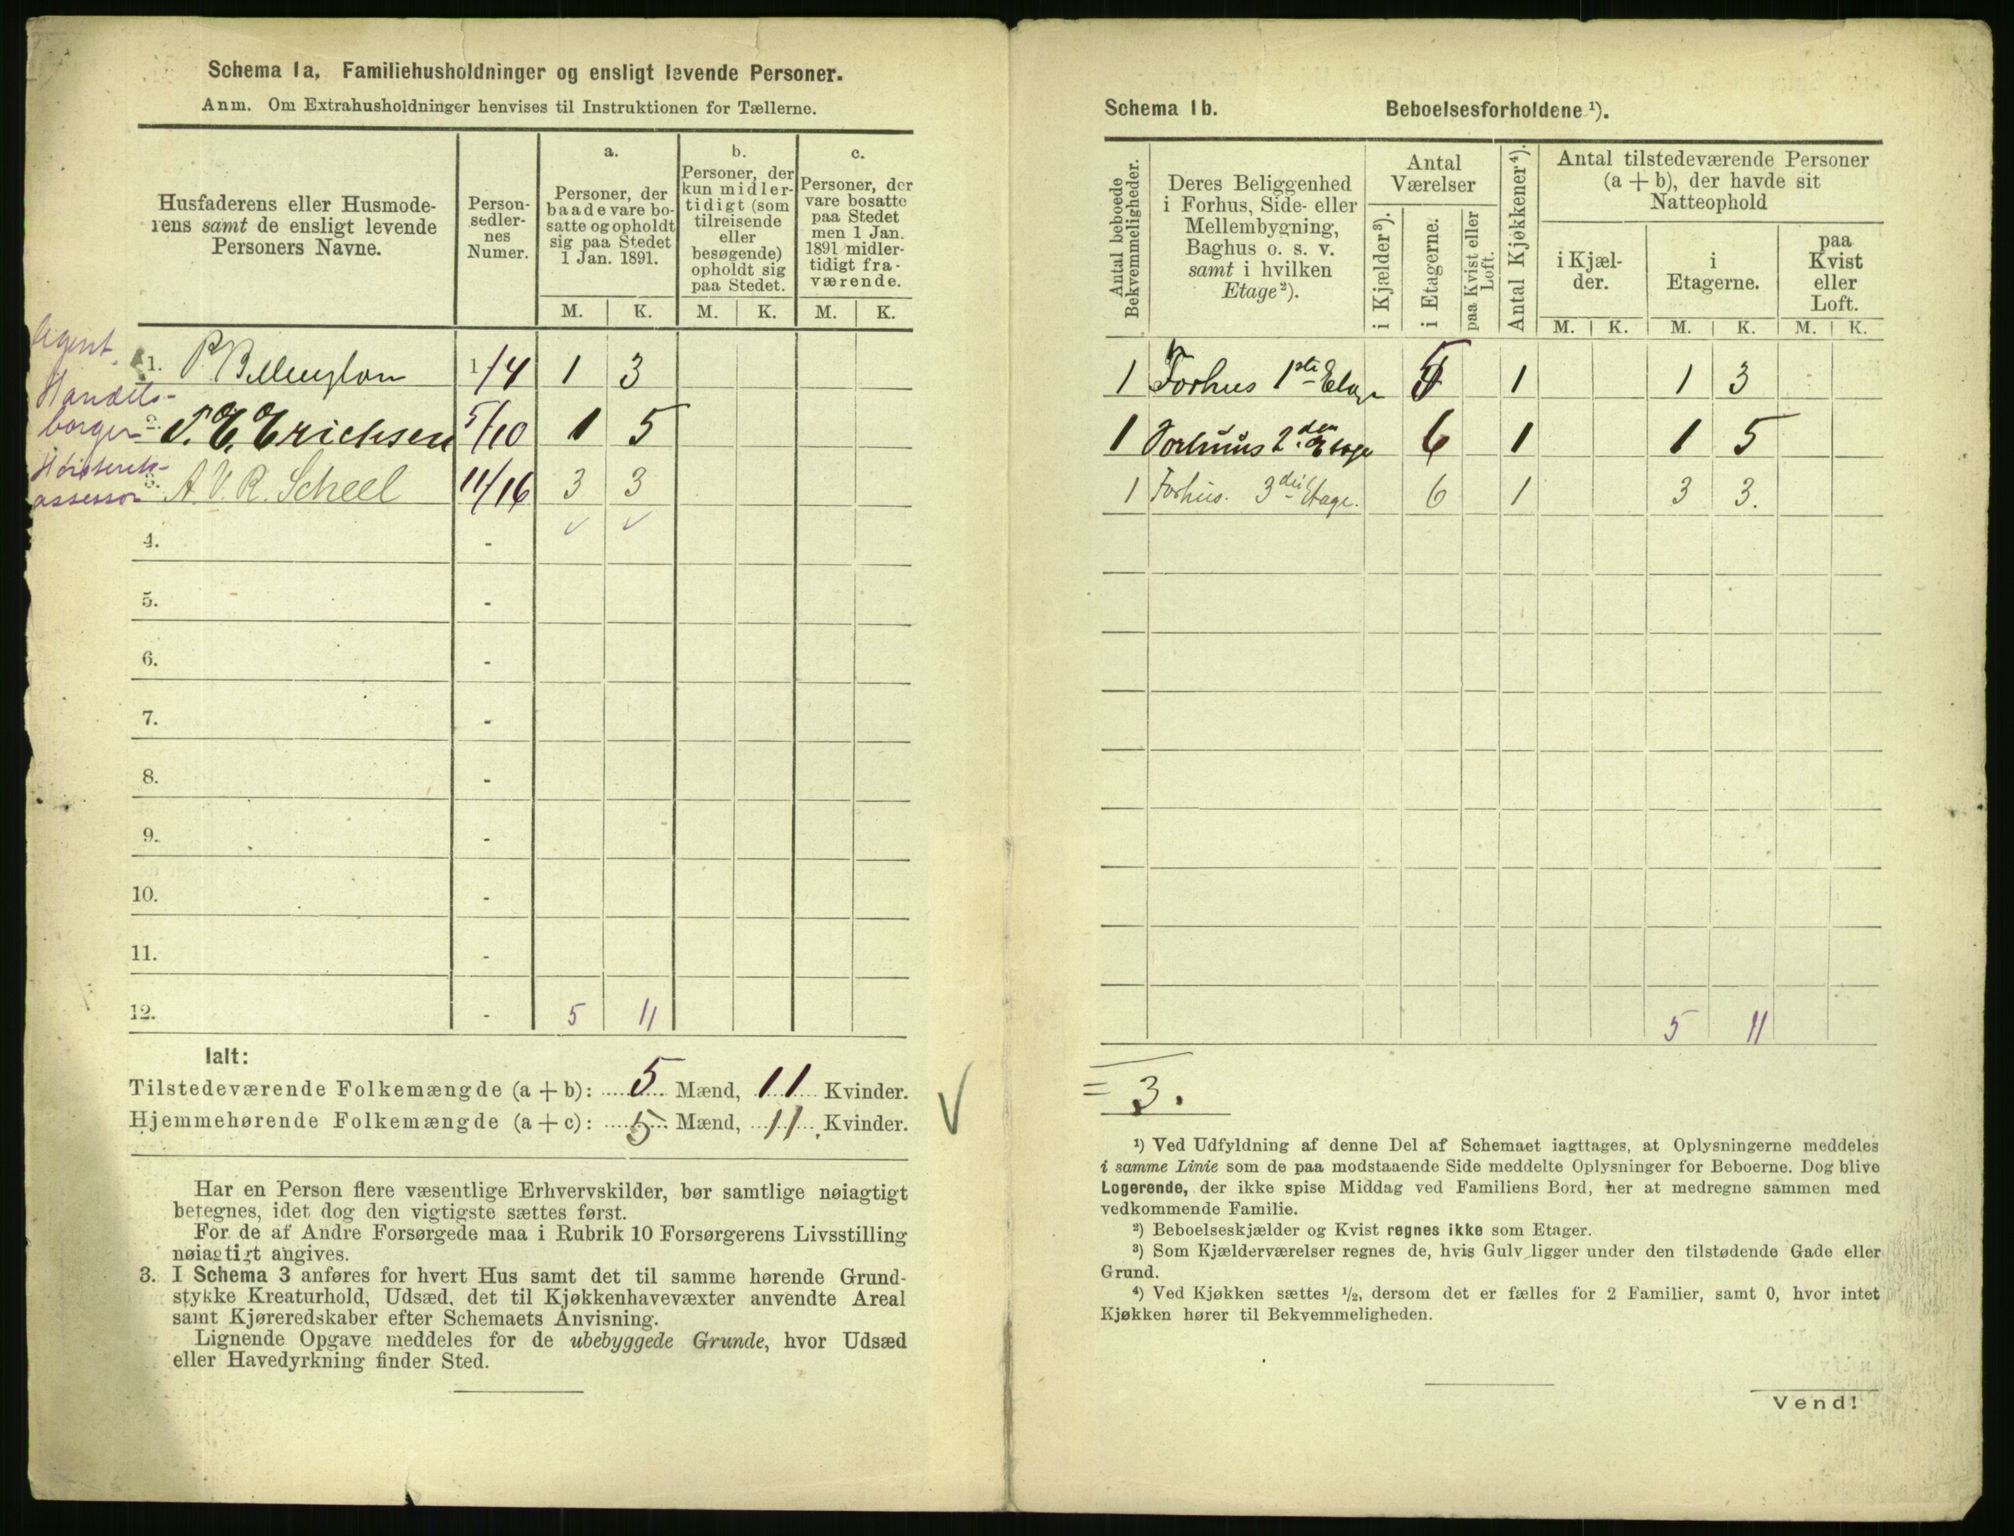 Schema 1a. Familiehusholdninger og ensligt levende Personer.
Anm. Om Extrahusholdninger henvises til Instruktionen for Tællerne.
Husfaderens eller Husmoderens samt de ensligt levende Personers Navne.
Personsedlernes Numer.
a.
Personer, der baade vare bosatte og opholdt sig paa Stedet 1 Jan. 1891.
b.
Personer, der kun midlertidigt (som tilreisende eller besøgende) opholdt sig paa Stedet.
c.
Personer, der vare bosatte paa Stedet men 1 Jan. 1891 midlertidigt fraværende.
M. K. M. K. M. K.
Agent
1. P. 1/4 1 3
Handels-
borger
2. P. E. Erichsen 5/10 1 5
Høisteret-
assessor
3. A. V. R. Scheel 11/16 3 3
4. -
5. -
6. -
7. -
8. -
9. -
10. -
11. -
12. - 5 11
Ialt:
Tilstedeværende Folkemængde (a + b): 5 Mænd, 11 Kvinder.
Hjemmehørende Folkemængde (a + c): 5 Mænd, 11 Kvinder.
Har en Person flere væsentlige Erhvervskilder, bør samtlige nøiagtigt
betegnes, idet dog den vigtigste sættes først.
For de af Andre Forsørgede maa i Rubrik 10 Forsørgerens Livsstilling
nøiagtigt angives.
3. I Schema 3 anføres for hvert Hus samt det til samme hørende Grund-
stykke Kreaturhold, Udsæd, det til Kjøkkenhavevæxter anvendte Areal
samt Kjøreredskaber efter Schemaets Anvisning.
Lignende Opgave meddeles for de ubebyggede Grunde, hvor Udsæd
eller Havedyrkning finder Sted.
Schema 1b. Beboelsesforholdene ¹).
Antal beboede Bekvemmeligheder.
Deres Beliggenhed i Forhus, Side- eller Mellembygning, Baghus o. s. v. samt i hvilken Etage²).
Antal Værelser
i Kjælder³).
i Etagerne.
paa Kvist eller Loft.
Antal Kjøkkener⁴).
Antal tilstedeværende Personer (a + b), der havde sit Natteophold
i Kjælder.
i Etagerne.
paa Kvist eller Loft.
M. K. M. K. M. K.
1 Forhus 1ste Etage 5 1 1 3
1 Forhuus 2den Etage 6 1 1 5
1 Forhus. 3die Etage. 6 1 3 3.
5 11
= 3.
¹) Ved Udfyldning af denne Del af Schemaet iagttages, at Oplysningerne meddeles
i samme Linie som de paa modstaaende Side meddelte Oplysninger for Beboerne. Dog blive
Logerende, der ikke spise Middag ved Familiens Bord, her at medregne sammen med
vedkommende Familie.
²) Beboelseskjælder og Kvist regnes ikke som Etager.
³) Som Kjælderværelser regnes de, hvis Gulv ligger under den tilstødende Gade eller
Grund.
⁴) Ved Kjøkken sættes ½, dersom det er fælles for 2 Familier, samt 0, hvor intet
Kjøkken hører til Bekvemmeligheden.
Vend!